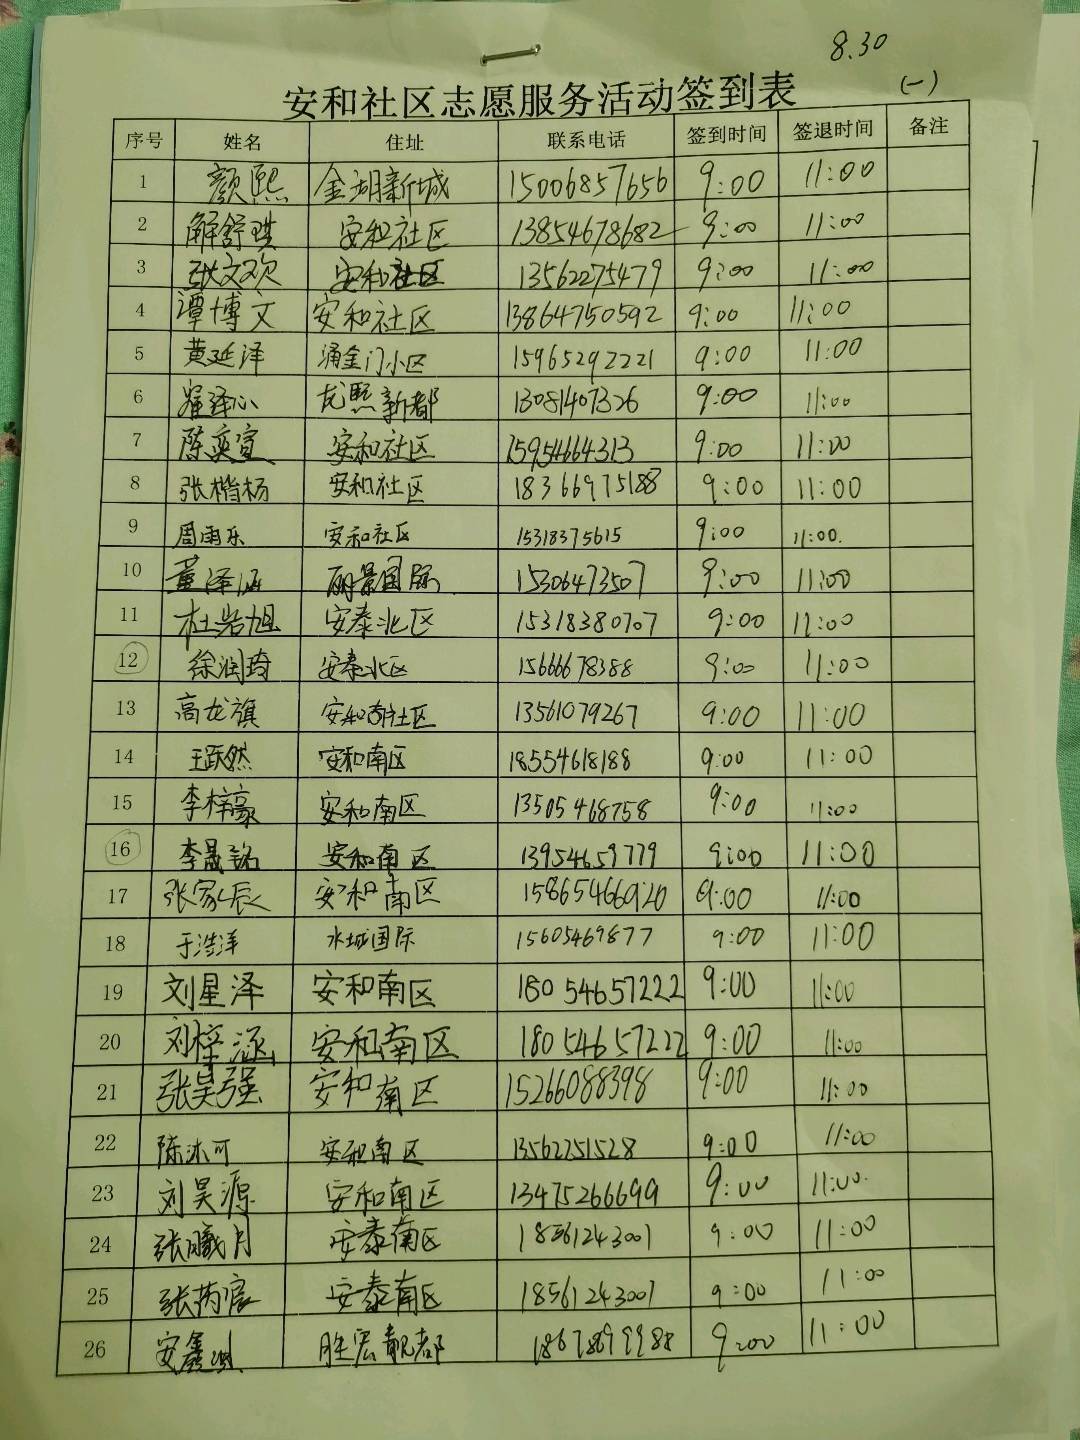 8.30
(一)
安和社区志愿服务活动签到表
序号 姓名 住址 联系电话 签到时间 签退时间 备注
1 颜熙 金湖新城 15006857656 9:00 11:00
2 解舒琪 安和社区 13854678682 9:00 11:00
3 张文欢 安和社区 13562275479 9:00 11:00
4 谭博文 安和社区 13864750592 9:00 11:00
5 黄延泽 涌金门小区 15965292221 9:00 11:00
6 翟泽心 龙熙新都 13081407326 9:00 11:00
7 陈奕萱 安和社区 15954664313 9:00 11:00
8 张楷杨 安和社区 18366975188 9:00 11:00
9 周雨乐 安和社区 15318375615 9:00 11:00.
10 董泽涵 丽景国际 15306473507 9:00 11:00
11 杜岩旭 安泰北区 15318380707 9:00 11:00
12 徐润琦 安泰北区 15666678388 9:00 11:00
13 高龙旗 安和南社区 13561079267 9:00 11:00
14 王跃然 安和南区 18554618188 9:00 11:00
15 李梓豪 安和南区 13505468758 9:00 11:00
16 李晟铭 安和南区 13954659779 9:00 11:00
17 张家辰 安和南区 9:00 11:00
18 于浩洋 水城国际 15605469877 9:00 11:00
19 刘星泽 安和南区 18054657222 9:00 11:00
20 刘梓涵 安和南区 18054657222 9:00 11:00
21 张昊强 安和南区 15266088398 9:00 11:00
22 陈沐可 安和南区 13562251528 9:00 11:00
23 刘昊源 安和南区 13475266699 9:00 11:00.
24 张曦月 安泰南区 18561243001 9:00 11:00
25 安泰南区 18561243001 9:00 11:00
26 胜宏靓都 18678699988 9:00 11:00